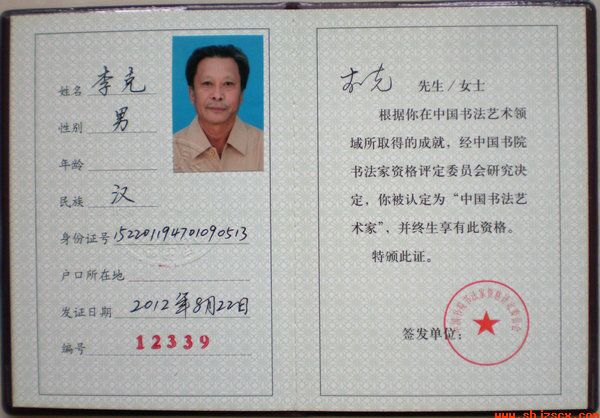 姓名 李克
性别 男
年龄
民族 汉
身份证号 152201194701090513
户口所在地
发证日期 2012年8月22日
编号 12339
李克 先生／女士
根据你在中国书法艺术领
域所取得的成就，经中国书院
书法家资格评定委员会研究决
定，你被认定为“中国书法艺
术家”，并终生享有此资格。
特颁此证。
签发单位：
中国书院书法家资格评定委员会
www.shjzscx.com